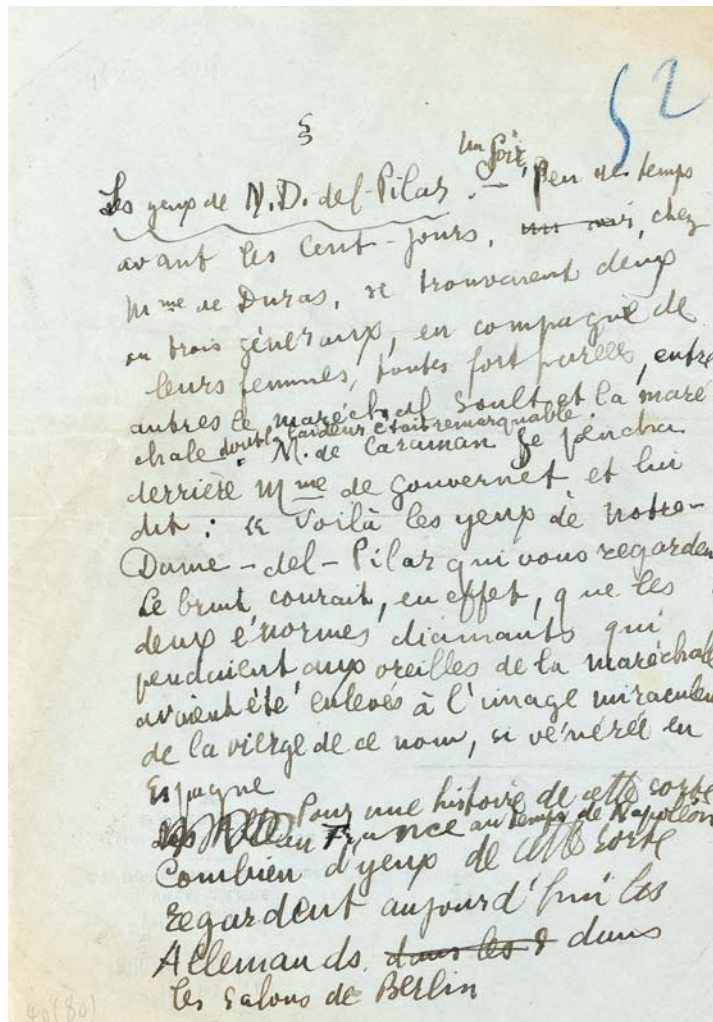 52
§
Un soir,
Les yeux de N.D. del-Pilar. — Peu de temps
avant les Cent-Jours, un soir, chez
Mme de Duras, se trouvaient deux
ou trois généraux, en compagnie de
leurs femmes, toutes fort parées, entre
autres le maréchal Soult et la maré
chale dont la laideur était remarquable.
M. de Caraman se pencha
derrière Mme de Gouvernet et lui
dit : « Voilà les yeux de Notre-
Dame-del-Pilar qui vous regarden
Le bruit courait, en effet, que les
deux énormes diamants qui
pendaient aux oreilles de la maréchale
avaient été enlevés à l'image miraculeu
de la vierge de ce nom, si vénérée en
Espagne
Pour une histoire de cette sorte
au temps de Napoléon
Combien d'yeux de cette sorte
regardent aujourd'hui les
Allemands. dans les S dans
les salons de Berlin
40(80)